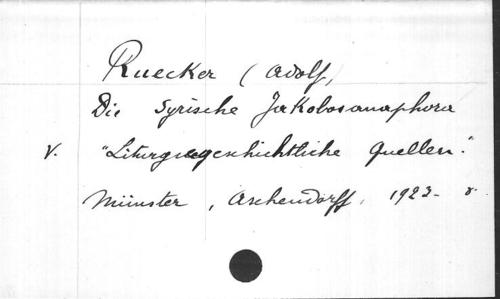 Ruecker (Adolf)
Die Syrische Jakobosanaphora
V. "Liturgiegeschichtliche Quellen."
Münster, Aschendorff, 1923- 8°